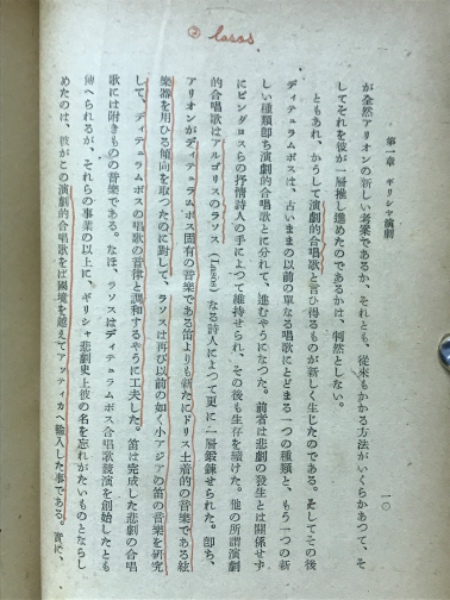 ② Lasos
第一章 ギリシヤ演劇
一〇
が全然アリオンの新しい考案であるか、それとも、従来もかかる方法がいくらかあつて、そ
してそれを彼が一層推し進めたのであるかは、判然としない。
ともあれ、かうして演劇的合唱歌と言ひ得るものが新しく生じたのである。そしてその後
ディテュラムボスは、古いままの以前の単なる唱歌にとどまる一つの種類と、もう一つの新
しい種類即ち演劇的合唱歌とに分れて、進むやうになつた。前者は悲劇の発生とは関係せず
にピンダロスらの抒情詩人の手によつて維持せられ、その後も生存を続けた。他の所謂演劇
的合唱歌はアルゴリスのラソス (Lasos) なる詩人によつて更に一層鍛錬せられた。即ち、
アリオンがディテュラムボス固有の音楽である笛よりも新たにドリス土着的の音楽である絃
楽器を用ひる傾向を取つたのに対して、ラソスは再び以前の如く小アジアの笛の音楽を研究
して、ディテュラムボスの唱歌の音律と調和するやうに工夫した。笛は完成した悲劇の合唱
歌には附きものの音楽である。なほ、ラソスはディテュラムボス合唱歌競演を創始したとも
傳へられるが、それらの事業の以上に、ギリシヤ悲劇史上彼の名を忘れがたいものとならし
めたのは、彼がこの演劇的合唱歌をば國境を越えてアッティカへ輸入した事である。實に、